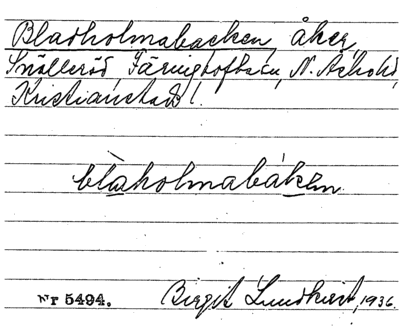 Bladholmabacken, åker,
Snälleröd, Färingtofta sn, N. Åsbohd,
Kristianstads l.
blaholmabáken
Nr 5494. Birgit Lundkvist, 1936.